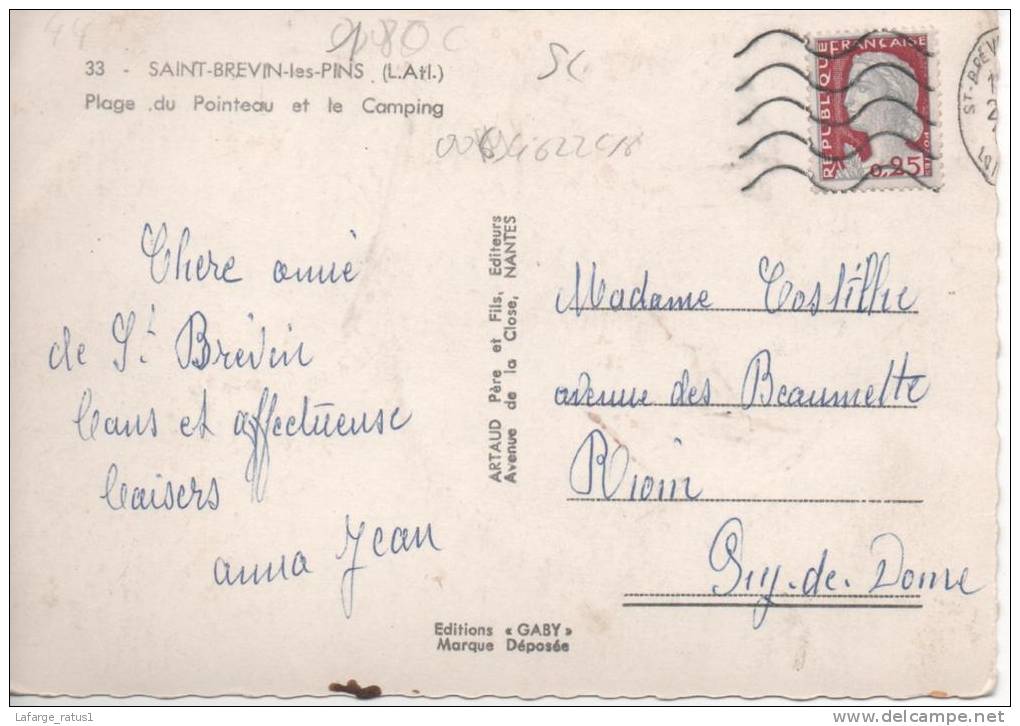 44
33 - SAINT-BREVIN-les-PINS (L.Atl.)
Plage du Pointeau et le Camping
REPUBLIQUE FRANÇAISE
POSTES
0,25
ST-BRÉV
Chere amie
de St Brevin
bons et affectueuse
baisers
anna Jean
ARTAUD Père et Fils, Editeurs
Avenue de la Close, NANTES
Madame Costilhe
avenue des Beaumette
Riom
Puy-de-Dome
Editions « GABY »
Marque Déposée
Lafarge_ratus1
www.delcampe.net